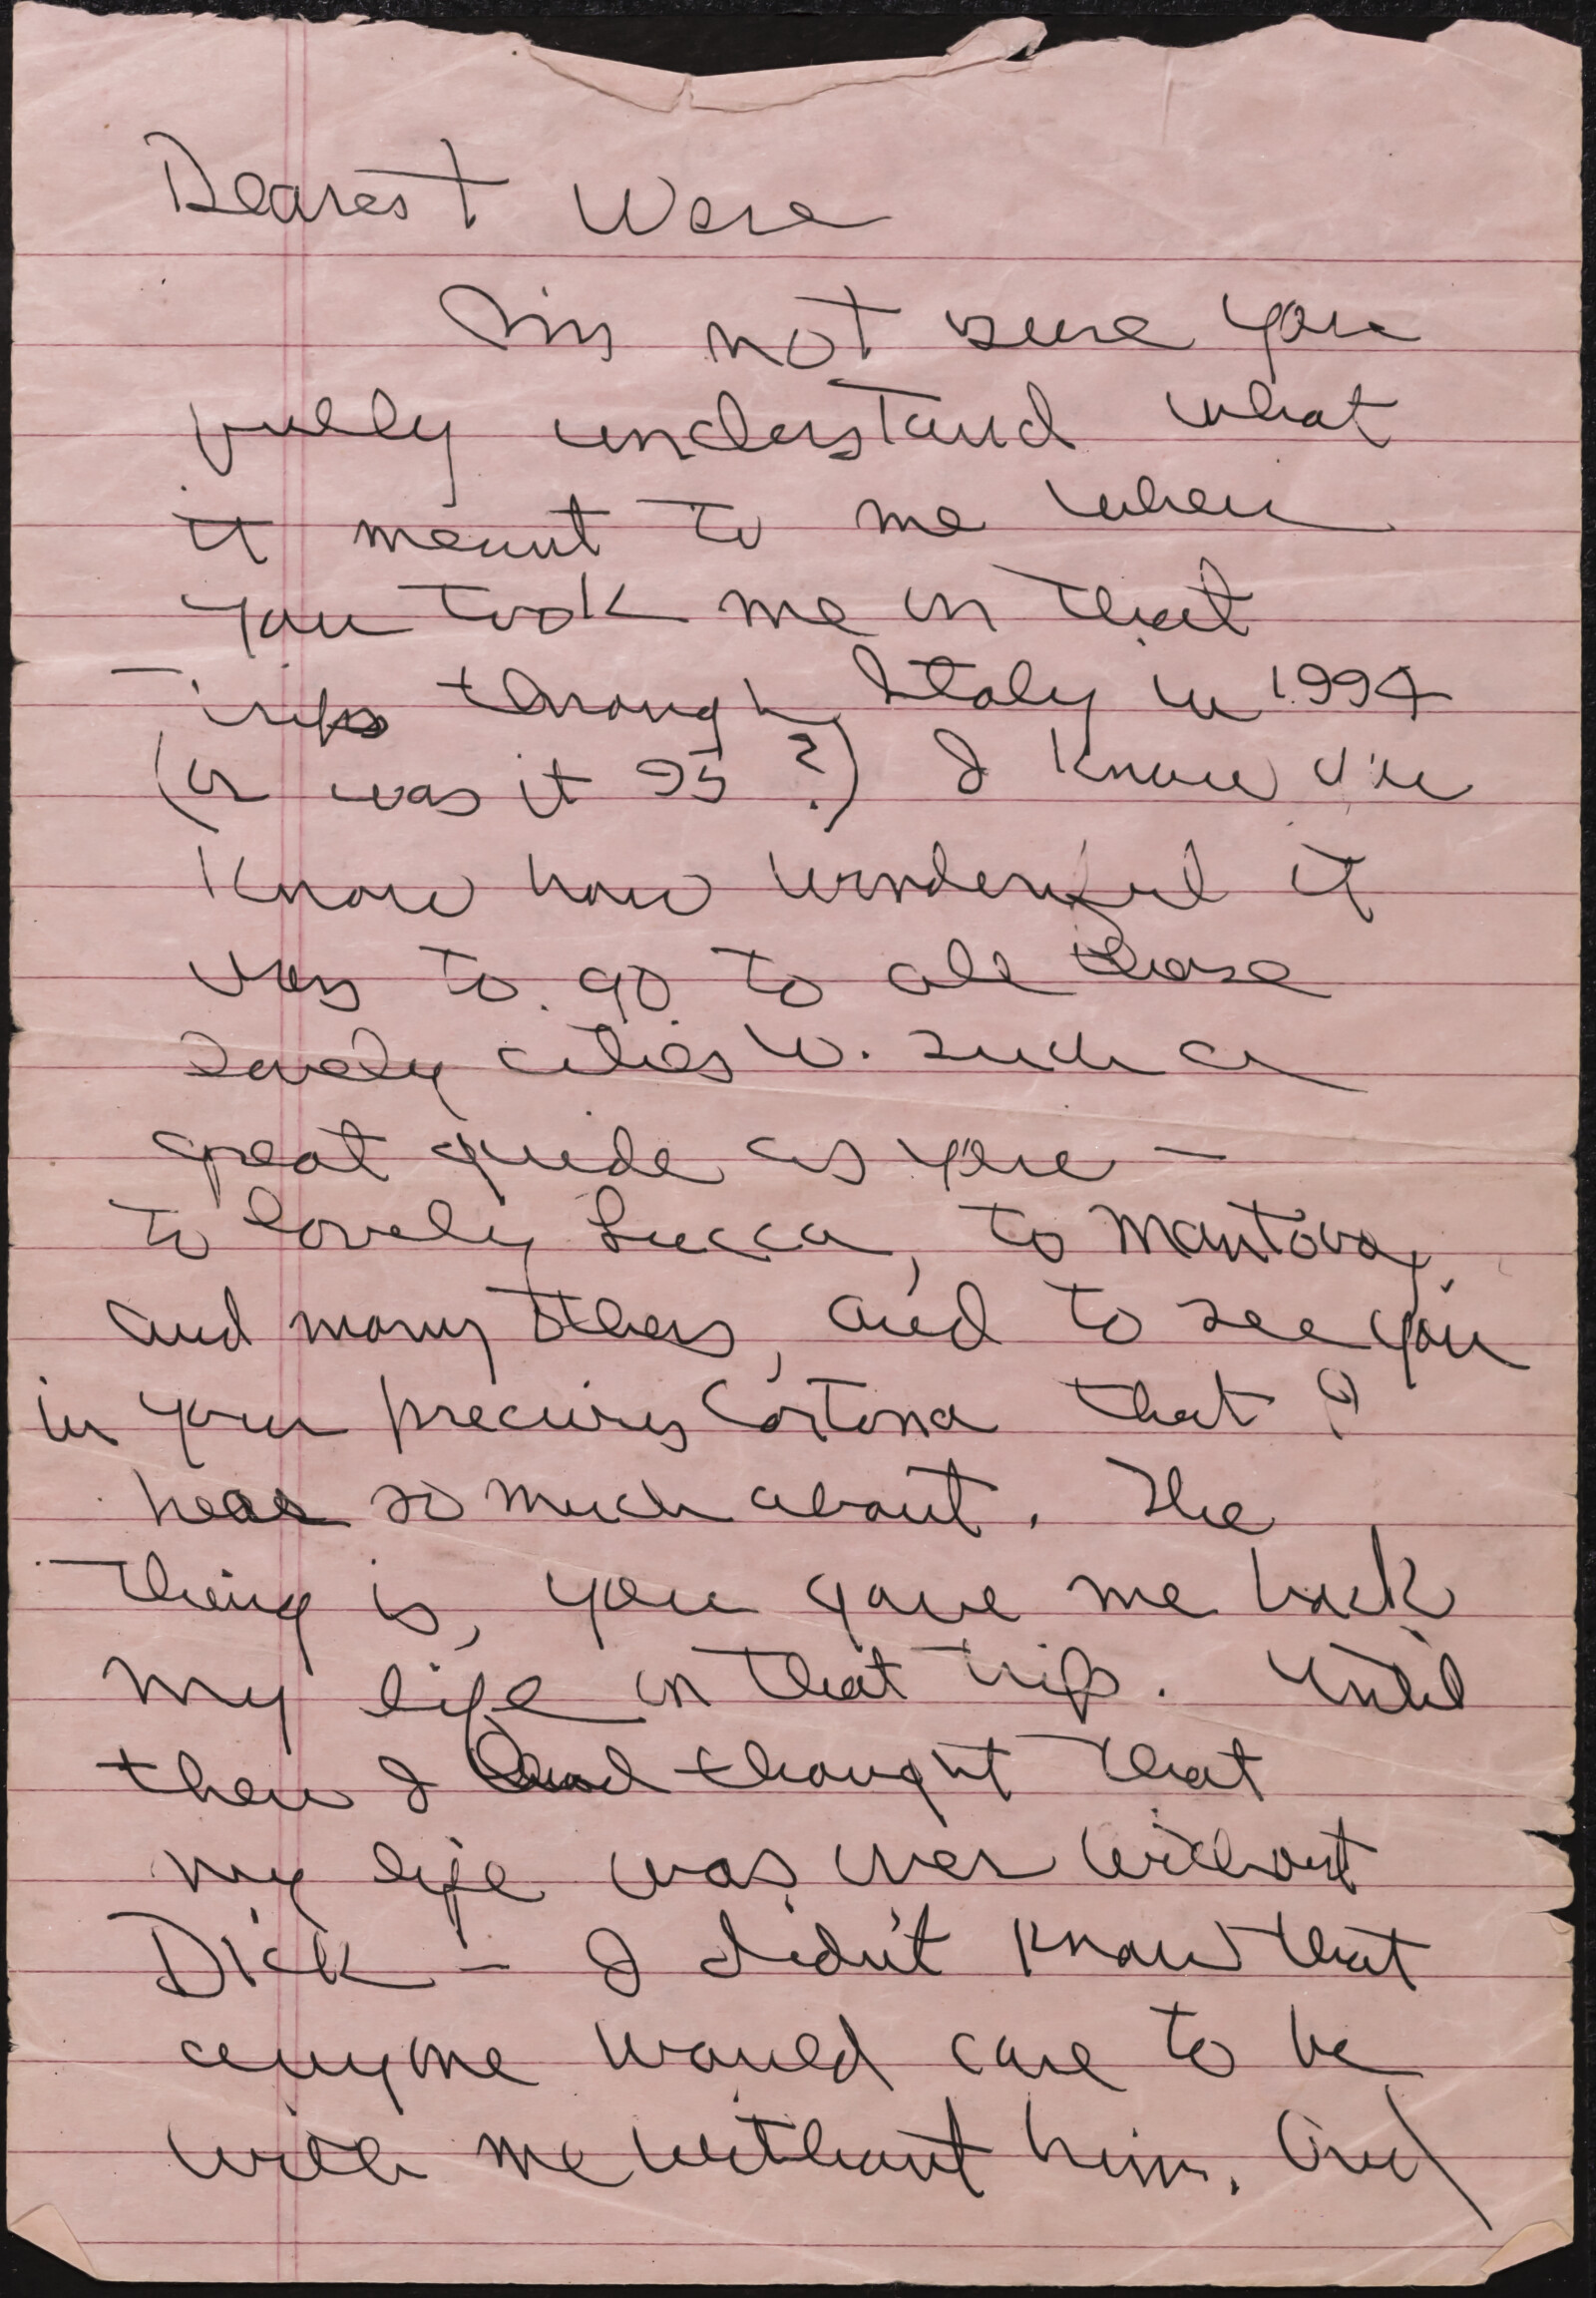 Dearest Were
I'm not sure you
fully understand what
it meant to me when
you took me on that
trip through Italy in 1994
(or was it 95?) I know u'll
know how wonderful it
was to go to all those
lovely cities w. such a
great guide as you —
to lovely Lucca, to Mantova,
and many others, and to see you
in your precious Cortona that I
hear so much about. The
thing is, you gave me back
my life on that trip. Until
then I had thought that
my life was over without
Dick — I didn't know that
anyone would care to be
with me without him. And